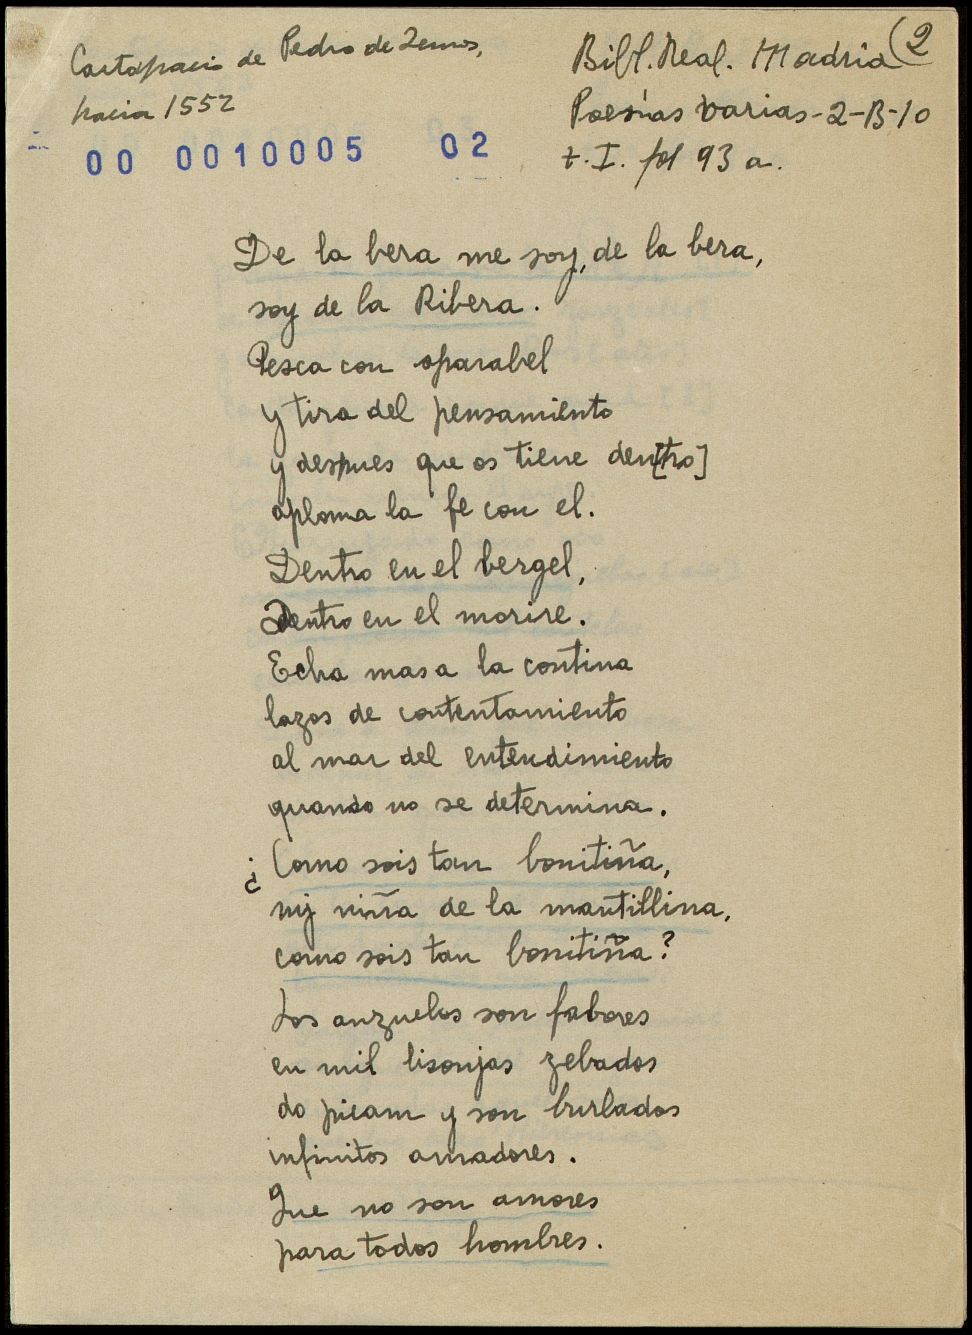 Cartapacio de Pedro de Lemos,
hacia 1552
00 0010005 02
(2
Bibl. Real. Madrid
Poesías varias-2-B-10
t. I. fol 93 a.
De la bera me soy, de la bera,
soy de la Ribera.
Pesca con oparabel
y tira del pensamiento
y despues que os tiene den[tro]
aploma la fe con el.
Dentro en el bergel,
Dentro en el morire.
Echa mas a la contina
lazos de contentamiento
al mar del entendimiento
quando no se determina.
¿Como sois tan bonitiña,
mj niña de la mantillina,
como sois tan bonitiña?
Los anzuelos son fabores
en mil lisonjas zebados
do pican y son burlados
infinitos amadores.
Que no son amores
para todos hombres.